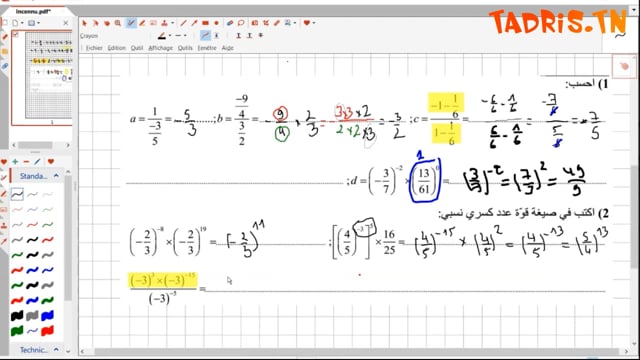 TADRiS.TN
inconnu.pdf
Crayon
Fichier Édition Outils Fenêtre Aide
1) احسب:
a = 1/(-3/5) = -5/3 ..... ; b = (-9/4)/(3/2) = -9/4 × 2/3 = -(3×3×2)/(2×2×3) = -3/2 ; c = (-1-1/6)/(1-1/6) = (-6/6 - 1/6)/(6/6 - 1/6) = (-7/6)/(5/6) = -7/5
; d = (-3/7)^-2 × (13/61)^0 = (3/7)^-2 = (7/3)^2 = 49/9
1
2) اكتب في صيغة قوّة عدد كسري نسبي:
(-2/3)^-8 × (-2/3)^19 = (-2/3)^11 ..... ; [(4/5)^-3]^5 × 16/25 = (4/5)^-15 × (4/5)^2 = (4/5)^-13 = (5/4)^13
((-3)^3 × (-3)^-15)/(-3)^-5 = .....
Standa...
Technic...